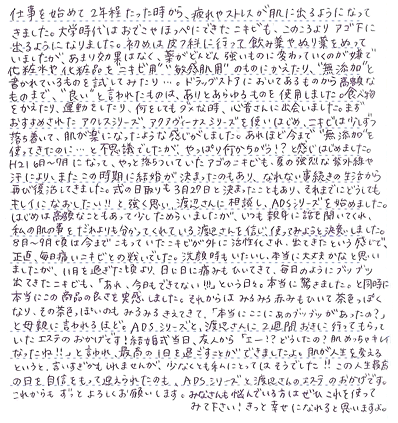 仕事を始めて2年程たった時から、疲れやストレスが肌に出るようになって
きました。大学時代はおでこやほっぺにできたニキビも、このころよりアゴ下に
出るようになりました。初めは皮フ科に行って飲み薬やぬり薬をぬって
いましたが、あまり効果はなく、薬がどんどん強いものに変わっていくのが嫌で
化粧水や化粧品を“ニキビ用”“敏感肌用”のものにかえたり、“無添加”と
書かれているものを試してみたり…。ドラッグストアにおいてあるものから高級な
ものまで、“良い”と言われたものは、ありとあらゆるものを使用しました。食べ物
をかえたり、運動をしたり、何をしてもダメな時、心音さんに出会いました。まず
おすすめされた アクレスシリーズ、アクアヴィーナスシリーズを使いはじめ、ニキビは少しずつ
落ち着いて、肌が楽になったような感じがしました。あれほど今まで“無添加”を
使ってきたのに…と不思議でしたが、やっぱり何かちがう!?と感じはじめました。
H21 6月〜9月になって、やっと落ちついていたアゴのニキビも、夏の強烈な紫外線や
汗により、またこの時期に結婚が決まったのもあり、なれない事続きの生活から
再び復活してきました。式の日取りも3月29日と決まったこともあり、それまでにどうしても
キレイになおしたい!!と強く思い、渡辺さんに相談し、ADSシリーズを始めました。
はじめは高級なこともあって少しためらいましたが、いつも親身に話を聞いてくれ、
私の肌の事をだれよりも分かってくれている渡辺さんを信じ、使ってみようと決意しました。
8月〜9月頃は今までこもっていたニキビが外に活性化され、出てきたという感じで、
正直、毎日痛いニキビとの戦いでした。洗顔時もいたいし、本当に大丈夫かなと思い
ましたが、11月を過ぎた頃より、日に日に痛みもひいてきて、毎日のようにブツブツ
出てきたニキビも、「あれ、今日もできてない!!!」という日々。本当に驚きました。と同時に
本当にこの商品の良さを実感しました。それからはみるみる赤みもひいて茶色っぽく
なり、その茶色っぽいのもみるみるきえてきて、「本当にここにあのブツブツがあったの?」
と母親に言われるほど。ADSシリーズと、渡辺さんに2週間おきに行ってもらって
いたエステのおかげです!結婚式当日、友人から「エー!?どうしたの?肌めっちゃキレイ
なったね!!」と言われ、最高の1日を過ごすことができましたよ。肌が人生を変える
というと、言いすぎかもしれませんが、少なくとも私にとってはそうでした!!この人生最高
の日を自信をもって迎えられたのも、ADSシリーズと渡辺さんのエステのおかげです。
これからもずっとよろしくお願いします。みなさんも悩んでいる方はぜひこれを使って
みて下さい!きっと幸せになれると思いますよ。